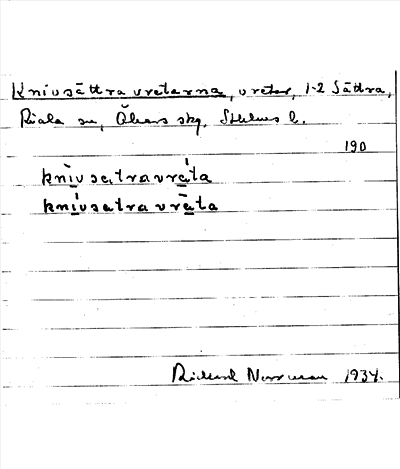 Knivsättra vretarna, vretar, 1-2 Sättra,
Riala sn, Åkers skg, Sthlms l.
190
knivsa,travreta
knivsatra vrata
Rickard Norrman 1934.